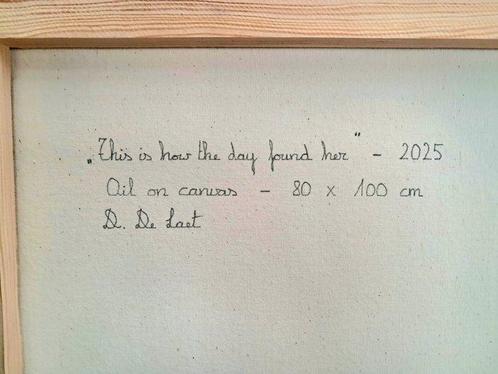 „This is how the day found her" - 2025
Oil on canvas - 80 x 100 cm
D. De Laet